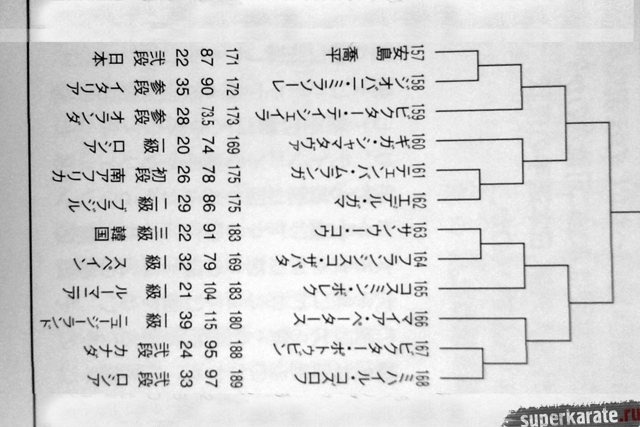 157 安島 喬平 171 87 22 弐段 日本
158 ジオバニ・ 172 90 35 参段 イタリア
159 ビクター・テイシェイラ 173 73.5 28 参段 オランダ
160 ギガ・ 169 74 20 一級 ロシア
161 ・ムランガ 175 78 26 初段 南アフリカ
162 ・ガマ 175 86 29 一級 ブラジル
163 サンウク・コウ 183 91 22 三級 韓国
164 フランシスコ・ザパタ 169 76 32 一級 スペイン
165 コスミン・ 183 104 21 一級 ルーマニア
166 ・ペータース 180 115 39 一級 ニュージーランド
167 ビクタ・ 188 95 24 弐段 カナダ
168 ミハイル・コズロフ 189 97 33 弐段 ロシア
superkarate.ru